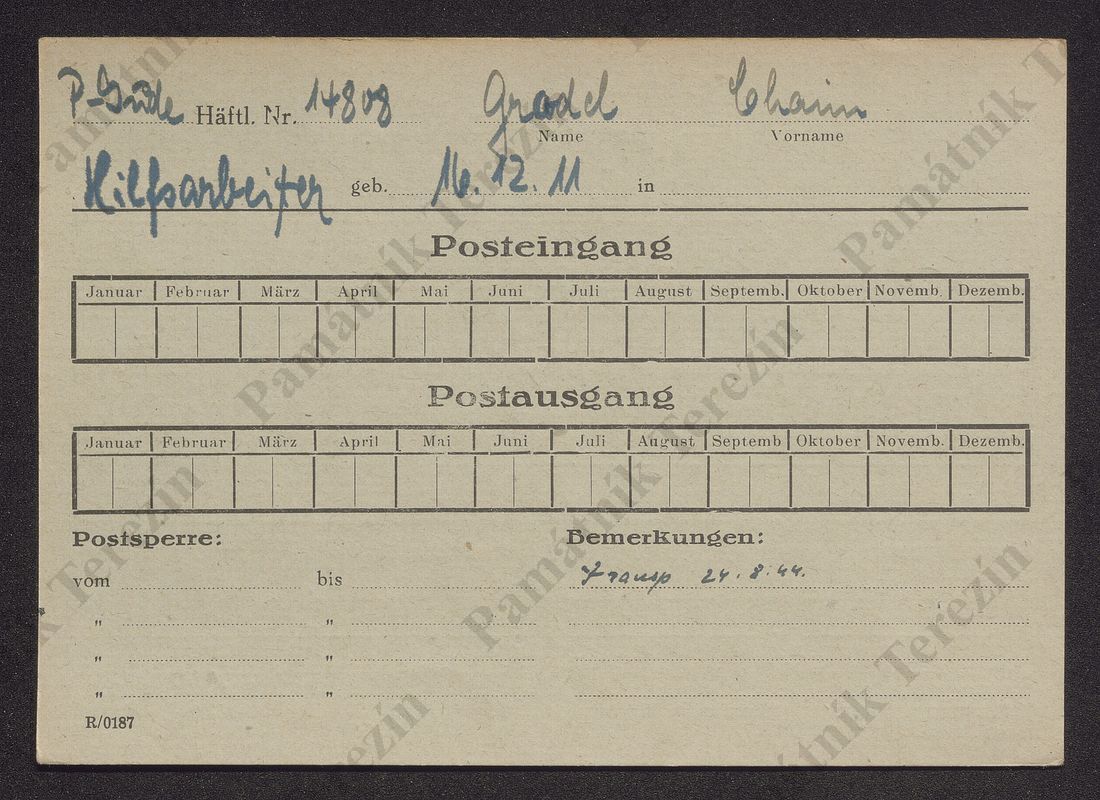 P-Jude Häftl. Nr. 14808 Gradel Chaim
Name Vorname
Hilfsarbeiter geb. 16.12.11 in
Posteingang
Januar Februar März April Mai Juni Juli August Septemb. Oktober Novemb. Dezemb.
Postausgang
Januar Februar März April Mai Juni Juli August Septemb Oktober Novemb. Dezemb.
Postsperre: Bemerkungen:
vom bis Transp 24.8.44.
" "
" "
" "
R/0187
Památník Terezín